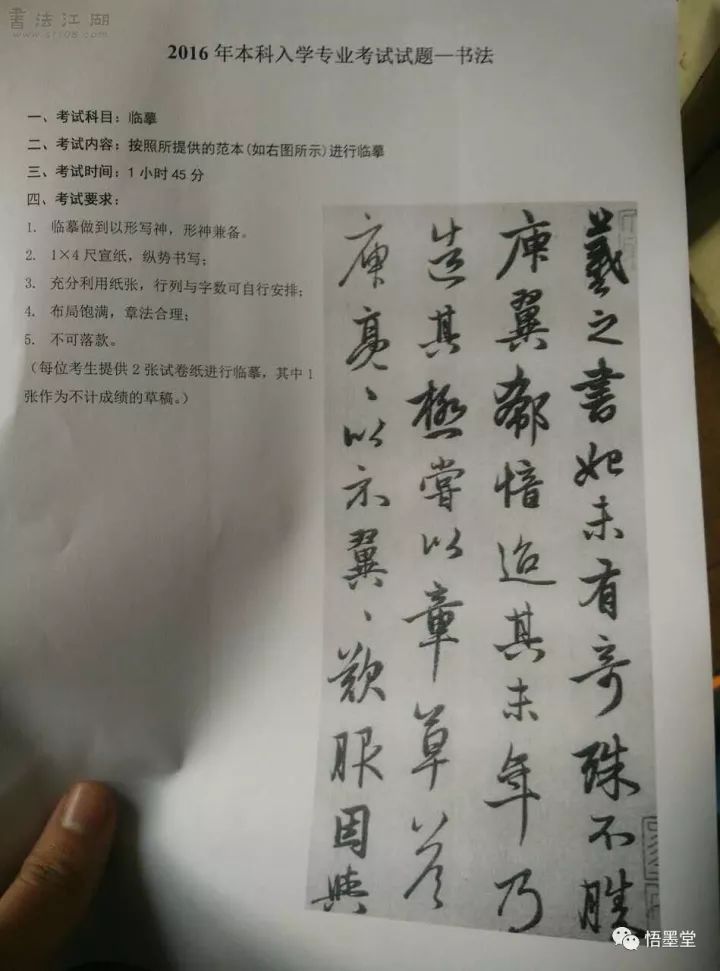 書法江湖
www.sf108.com
2016 年本科入学专业考试试题—书法
一、考试科目：临摹
二、考试内容：按照所提供的范本(如右图所示)进行临摹
三、考试时间：1 小时 45 分
四、考试要求：
1. 临摹做到以形写神，形神兼备。
2. 1×4 尺宣纸，纵势书写；
3. 充分利用纸张，行列与字数可自行安排；
4. 布局饱满，章法合理；
5. 不可落款。
（每位考生提供 2 张试卷纸进行临摹，其中 1
张作为不计成绩的草稿。）
羲之書始未有奇殊不勝
庾翼郗愔迨其末年乃
造其極嘗以章草答
庾亮、以示翼、歎服因與
悟墨堂